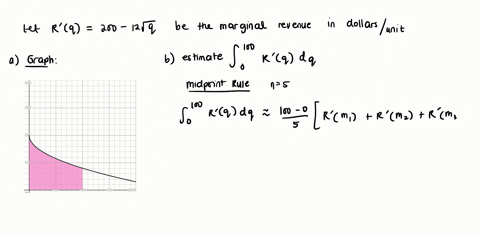 Let R'(q) = 200 - 12√q be the marginal revenue in dollars/unit
a) Graph:
b) estimate ∫₀¹⁰⁰ R'(q) dq
midpoint Rule n=5
∫₀¹⁰⁰ R'(q) dq ≈ (100-0)/5 [ R'(m₁) + R'(m₂) + R'(m₃